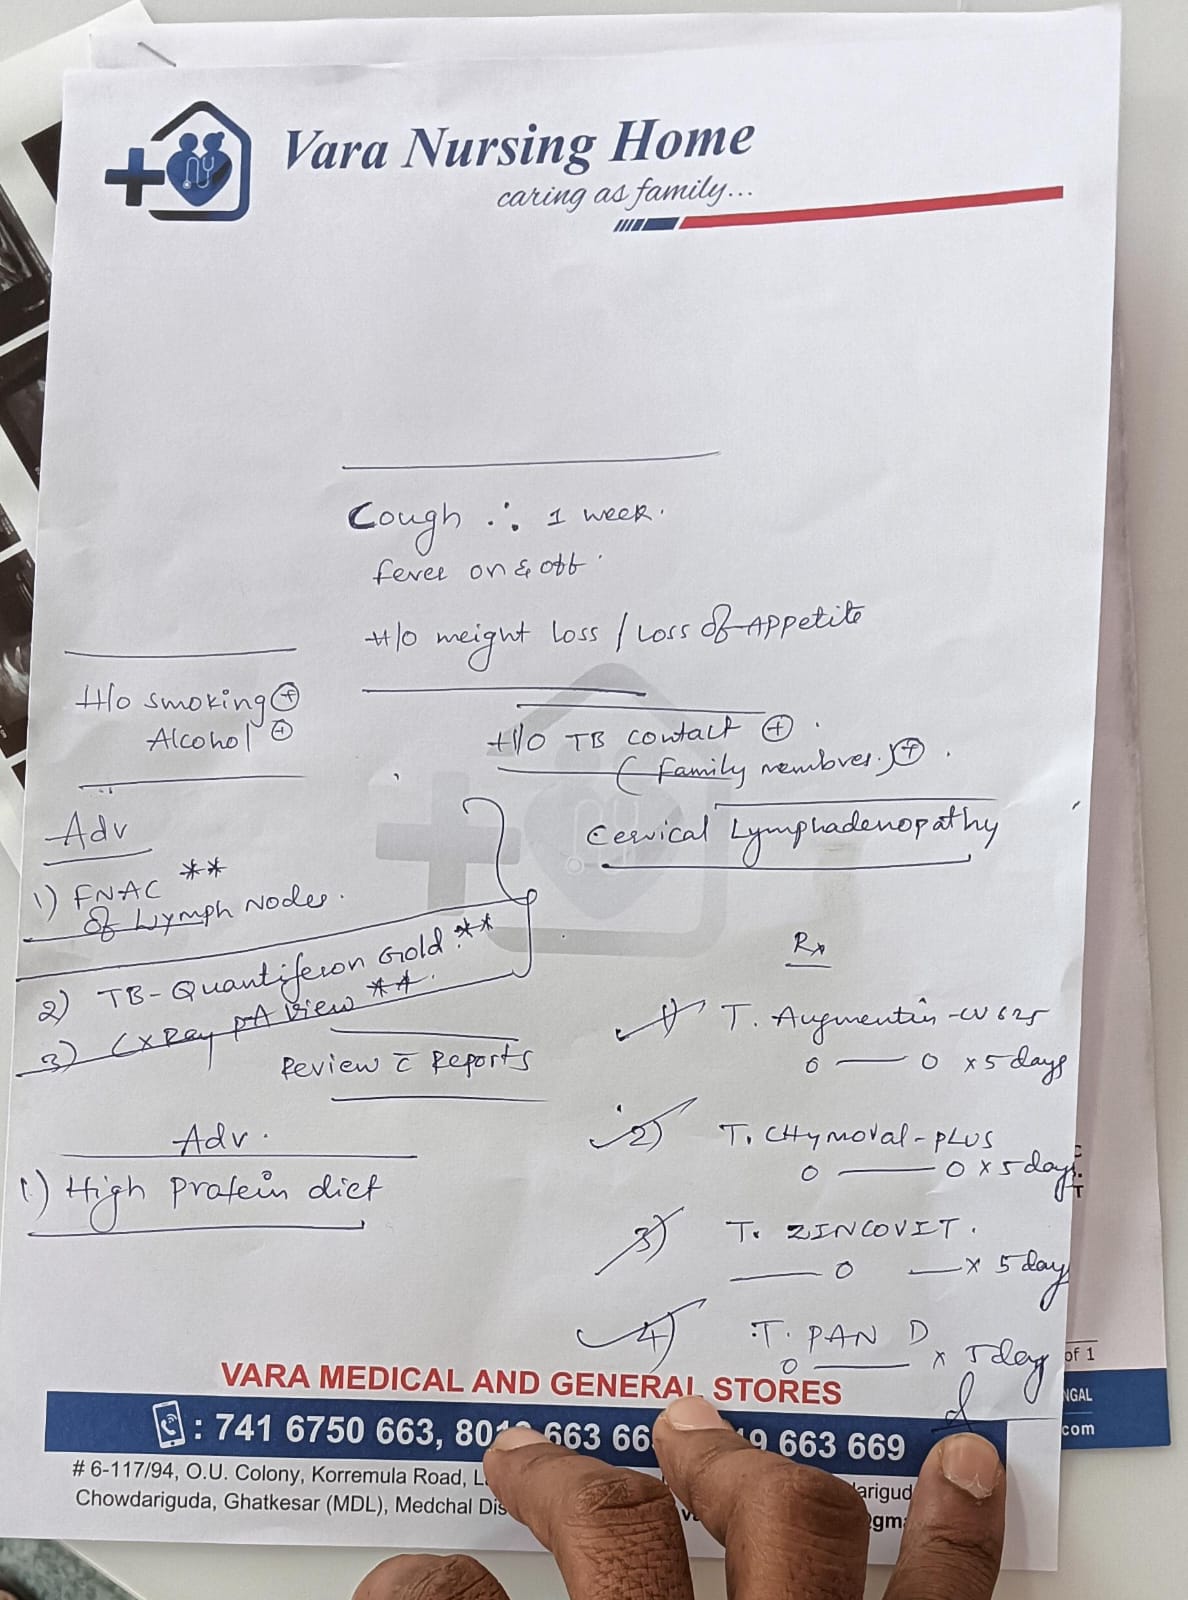 Vara Nursing Home
caring as family...
Cough ∴ 1 week.
fever on & off.
H/o weight loss / Loss of Appetite
H/o smoking (+)
Alcohol (+)
H/o TB contact (+).
(family membres.) (+).
Cervical Lymphadenopathy
Adv
1) FNAC **
of Lymph Nodes.
2) TB-Quantiferon Gold **
3) CXRay PA view **.
Review c̄ Reports
Adv.
1.) High protein diet
Rx
1) T. Augmentin-CV 625
0 — 0 x 5 days
2) T. CHymoral-PLUS
0 — 0 x 5 days
3) T. ZINCOVIT.
— 0 — x 5 day
4) T. PAN D
0 — x 5 day
of 1
NGAL
com
VARA MEDICAL AND GENERAL STORES
: 741 6750 663, 663 9 663 669
# 6-117/94, O.U. Colony, Korremula Road,
Chowdariguda, Ghatkesar (MDL), Medchal